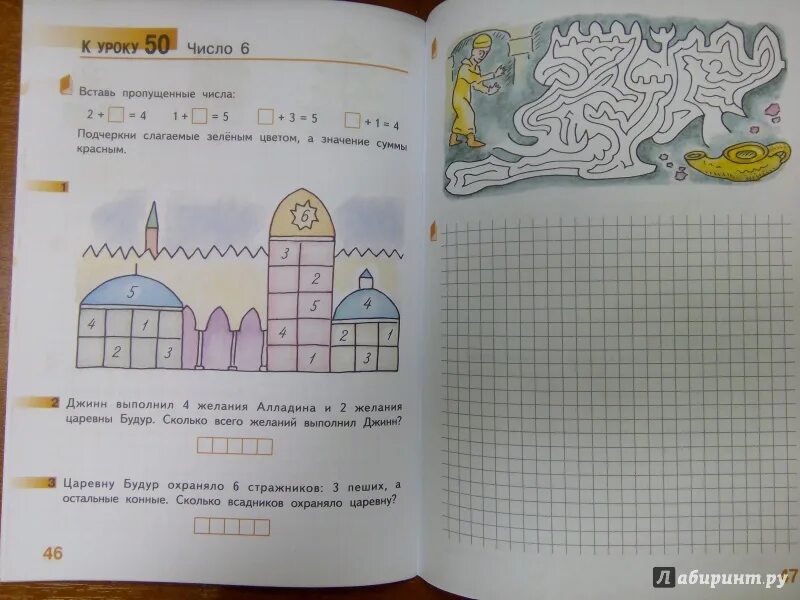 К УРОКУ 50 Число 6
Вставь пропущенные числа:
2 + □ = 4 1 + □ = 5 □ + 3 = 5 □ + 1 = 4
Подчеркни слагаемые зелёным цветом, а значение суммы
красным.
1
6
3
2
5
4
1
5
4 1
2 3
4
2 1
3
2 Джинн выполнил 4 желания Алладина и 2 желания
царевны Будур. Сколько всего желаний выполнил Джинн?
3 Царевну Будур охраняло 6 стражников: 3 пеших, а
остальные конные. Сколько всадников охраняло царевну?
46
47
Лабиринт.ру